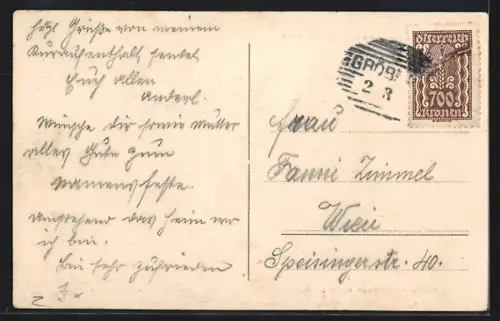 Herzl Grüße von meinem
Kuraufenthalt sendet
Euch allen
Anderl.
Wünsche Dir sowie Mutter
alles Gute zum
Namensfeste.
umgehend das Heim wo
ich bin.
Bin sehr zufrieden
Österreich
700
Kronen
GROB
2 3
Frau
Fanni Zimmel
Wien
Speisingerstr. 40.